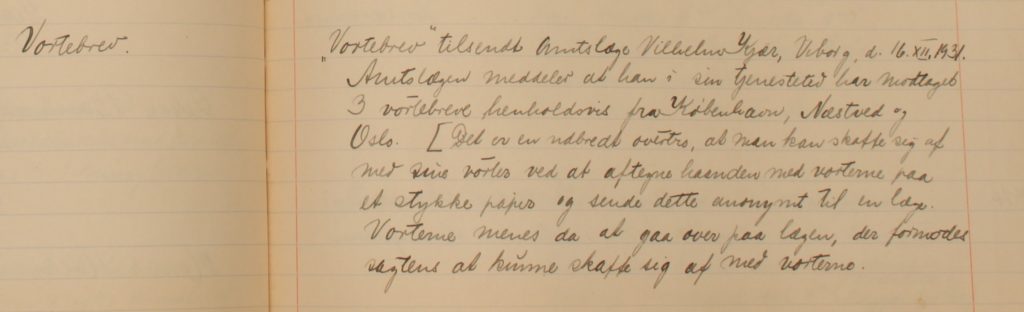 Vortebrev.
"Vortebrev" tilsendt Amtslæge Vilhelm Kjær, Viborg, d. 16.XII.1931.
Amtslægen meddeler at han i sin tjenestetid har modtaget
3 vortebreve henholdsvis fra København, Næstved og
Oslo. [Det er en udbredt overtro, at man kan skaffe sig af
med sine vorter ved at aftegne haanden med vorterne paa
et stykke papir og sende dette anonymt til en læge.
Vorterne menes da at gaa over paa lægen, der formodes
sagtens at kunne skaffe sig af med vorterne.